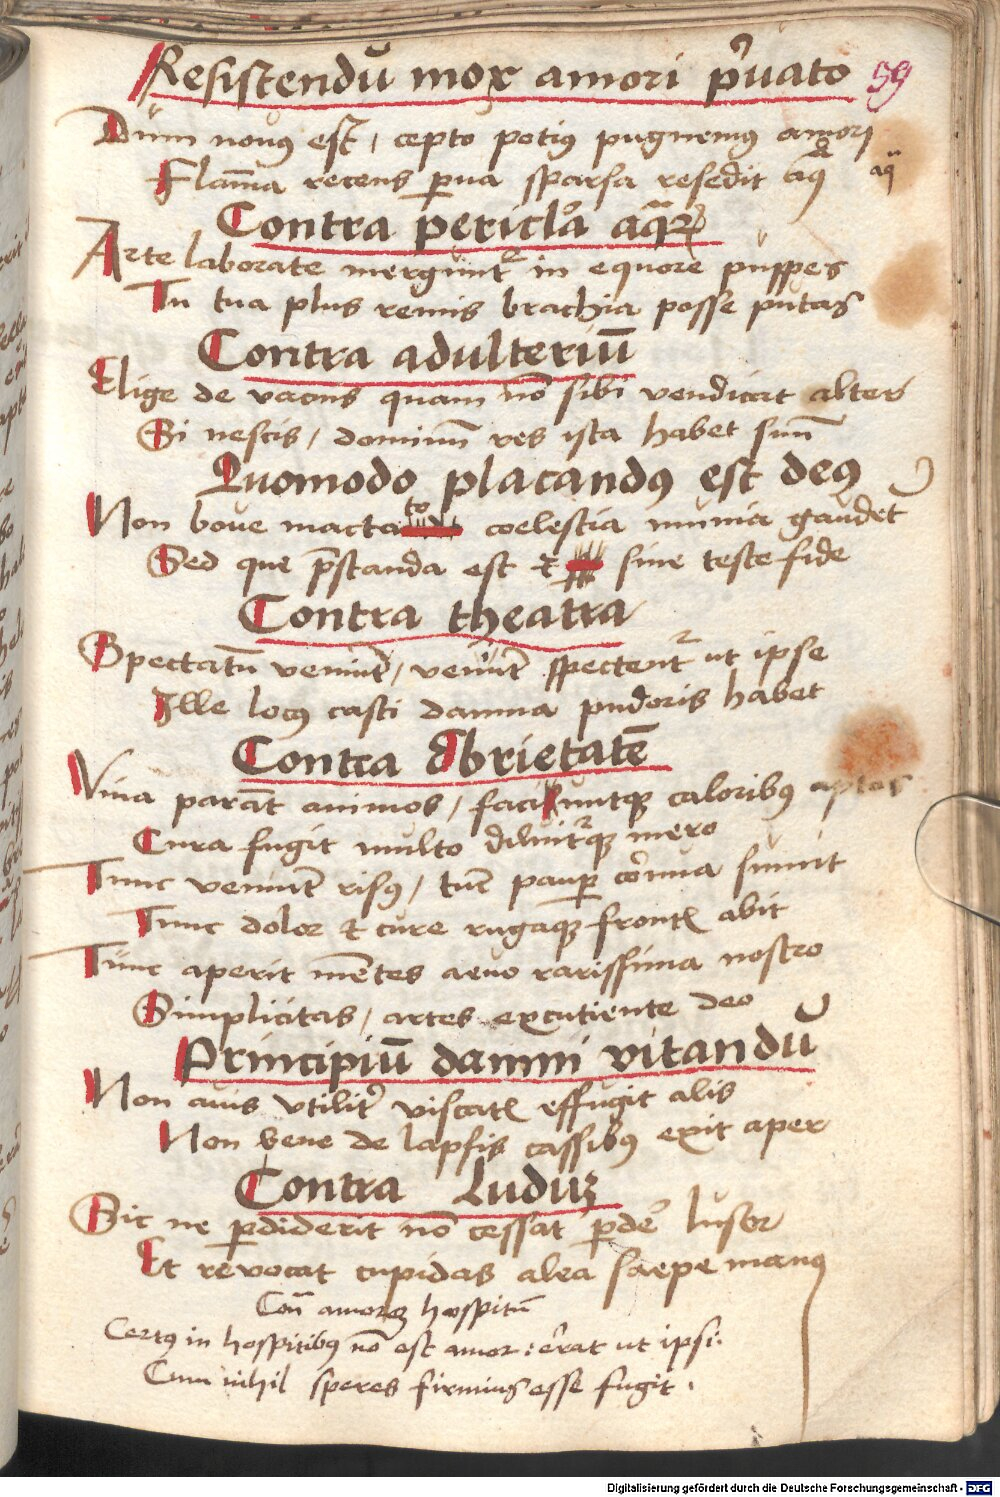 Resistendū mox amori p̄uato
59
Dum nouꝰ est, cepto potiꝰ pugnemꝰ amori
Flāma recens ꝑua sparsa resedit aqͣ aq̄
Contra pericla aqͣꝝ
Arte laborate mergunt᷑ in equore puppes
Tu tua plus remis brachia posse putas
Contra adulteriū
Elige de vacuis quam nō sibi vendicat alter
Si nescis, dominū res ista habet suū
Quomodo placandꝰ est deꝰ
Non boue mactato coelestia numia gaudēt
Sed que p̄standa est et sine teste fide
Contra theatra
Spectatū veniūt, veniūt spectent᷑ ut ipse
Ille locꝰ casti damna pudoris habet
Contra Ebrietatē
Vina parāt animos, faciuntqꝫ caloribꝰ aptos
Cura fugit multo diluit᷑qꝫ mero
Tunc veniūt risꝰ, tūc paupꝑ cornua sumit
Tunc dolor et cure rugaqꝫ frontꝭ abit
Tunc aperit mētes aeuo rarissima nostro
Simplicitas, artes excutiente deo
Principiū damni vitandū
Non auis vtilit᷑ viscatꝭ effugit alis
Non bene de lapsis cassibꝰ exit aper
Contra Luduꝫ
Sic ne ꝑdiderit nō cessat ꝑdē lusor
Et reuocat cupidas alea saepe manꝰ
Con̄ amorē hospitū
Certꝰ in hospitibꝰ nō est amor: errat ut ipsi:
Cum nihil speres firmius esse fugit.
Digitalisierung gefördert durch die Deutsche Forschungsgemeinschaft - DFG